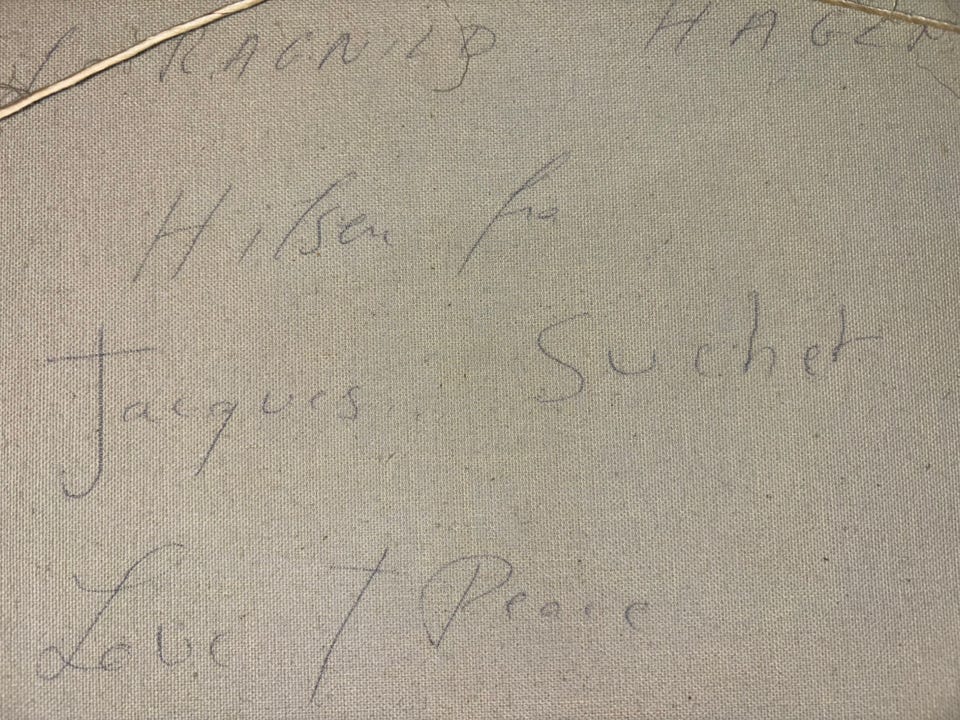 RAGNILD HAGEN
Hilsen fra
Jacques Suchet
Love + Peace